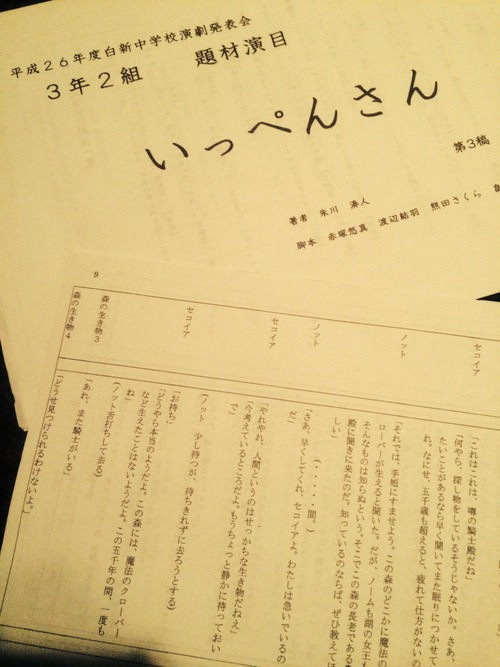 平成２６年度白新中学校演劇発表会
３年２組　題材演目
いっぺんさん
第３稿
著者　朱川　湊人
脚本　赤塚悠真　渡辺結羽　熊田さくら
9
セコイア
「これはこれは、噂の騎士殿だね」
「何やら、探し物をしているそうじゃないか。さあ、
たいことがあるなら早く聞いてまた眠りにつかせて
れ。なにせ、五千歳も超えると、疲れて仕方がないの
ノット
「それでは、手短にすませよう。この森のどこかに魔法の
ローバーが生えると聞いた。だが、ノームも湖の女王も
そんなものは知らぬという。そこでこの森の長老である
殿に聞きに来たのだ。知っているのならば、ぜひ教えてほ
しい」
（・・・・・間。）
ノット
「さあ、早くしてくれ、セコイアよ。わたしは急いでいるの
だ」
セコイア
「やれやれ、人間というのはせっかちな生き物だねえ」
「今考えているところだよ。もうちょっと静かに待っておい
で」
（ノット　少し待つが、待ちきれずに去ろうとする）
セコイア
「お待ち」
「どうやら本当のようだよ。この森には、魔法のクローバー
など生えたことはないようだよ。この五千年の間、一度も
ね」
（ノット舌打ちして去る）
森の生き物３
「あれ、また騎士がいる」
森の生き物４
「どうせ見つけられるわけないよ。」